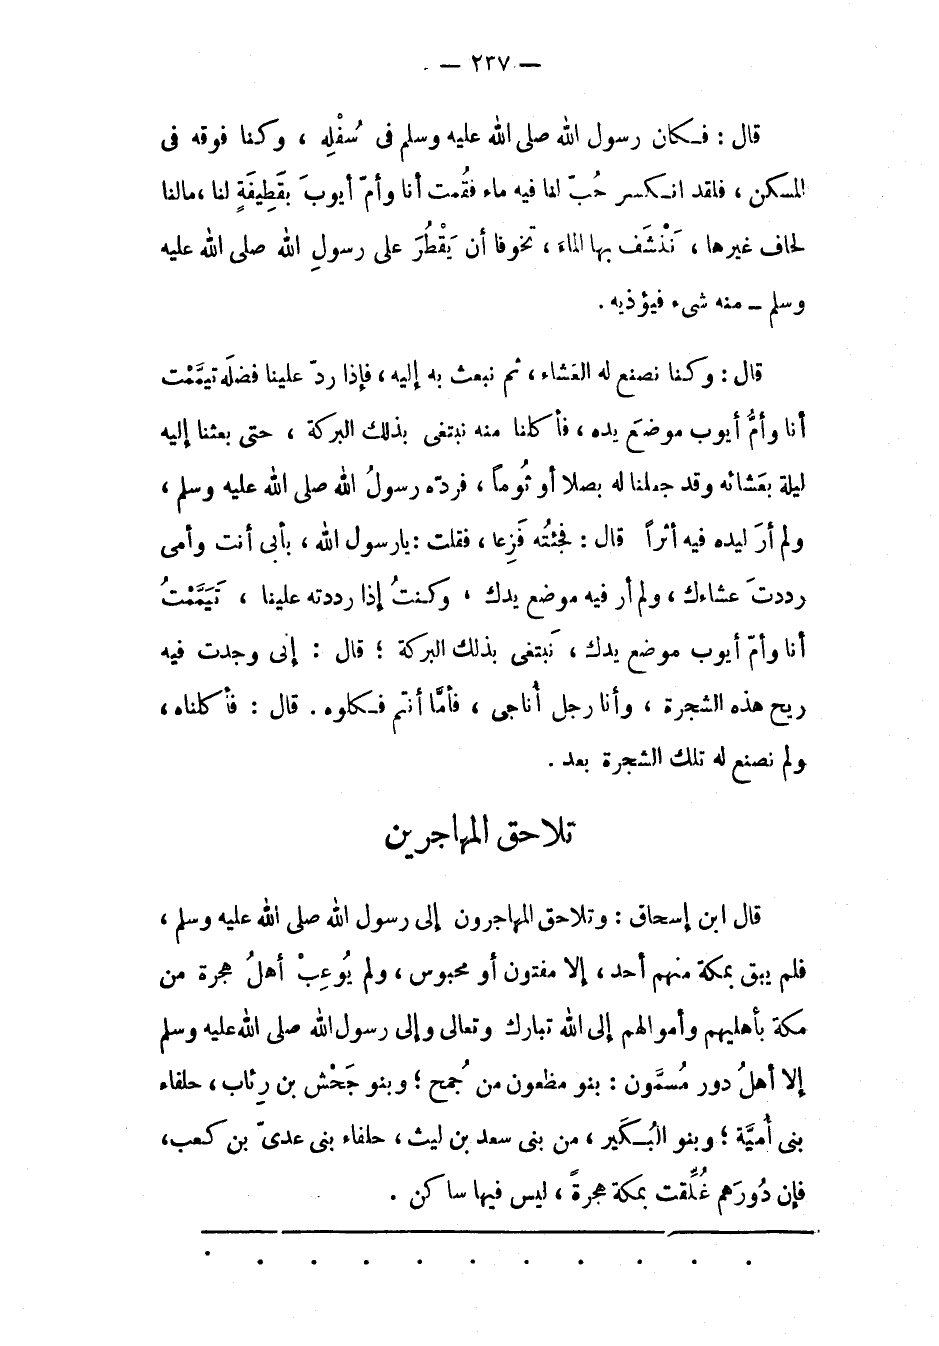 — ٢٣٧ —
قال : فكان رسول الله صلى الله عليه وسلم فى سُفْلِه ، وكنا فوقه فى
المسكن ، فلقد انكسر حُبّ لنا فيه ماء فقُمت أنا وأمّ أيوبَ بقَطِيفَةٍ لنا ، مالنا
لحاف غيرها ، نَنْشَف بها الماءَ ، تخوفا أن يَقْطُرَ على رسولِ الله صلى الله عليه
وسلم – منه شىء فيؤذيه .
قال : وكنا نصنع له العَشاء ، ثم نبعث به إليه ، فإذا ردّ علينا فضلَه تيمَّمْت
أنا وأمُّ أيوب موضعَ يده ، فأكلنا منه نبتغى بذلك البركة ، حتى بعثنا إليه
ليلة بعَشائه وقد جعلنا له بصلا أو ثُوماً ، فردّه رسولُ الله صلى الله عليه وسلم ،
ولم أرَ ليده فيه أثراً قال : فجئتُه فَزِعا ، فقلت : يارسول الله ، بأبى أنت وأمى
رددتَ عشاءك ، ولم أر فيه موضع يدك ، وكنتُ إذا رددته علينا ، تَيَمَّمْتُ
أنا وأمّ أيوب موضع يدك ، نَبتغى بذلك البركة ؛ قال : إنى وجدت فيه
ريح هذه الشجرة ، وأنا رجل أُناجى ، فأمَّا أنتم فكلوه . قال : فأكلناه ،
ولم نصنع له تلك الشجرة بعد .
تلاحق المهاجرين
قال ابن إسحاق : وتلاحق المهاجرون إلى رسول الله صلى الله عليه وسلم ،
فلم يبق بمكة منهم أحد ، إلا مفتون أو محبوس ، ولم يُوعِبْ أهلُ هجرة من
مكة بأهليهم وأموالهم إلى الله تبارك وتعالى وإلى رسول الله صلى الله عليه وسلم
إلا أهلُ دور مُسمَّون : بنو مظعون من جُمح ؛ وبنو جَحْش بن رِئاب ، حلفاء
بنى أُميَّة ؛ وبنو البُكَير ، من بنى سعد بن ليث ، حلفاء بنى عدىّ بن كعب ،
فإن دُورَهم غُلِّقت بمكة هجرةً ، ليس فيها ساكن .
. . . . . . . . . . .